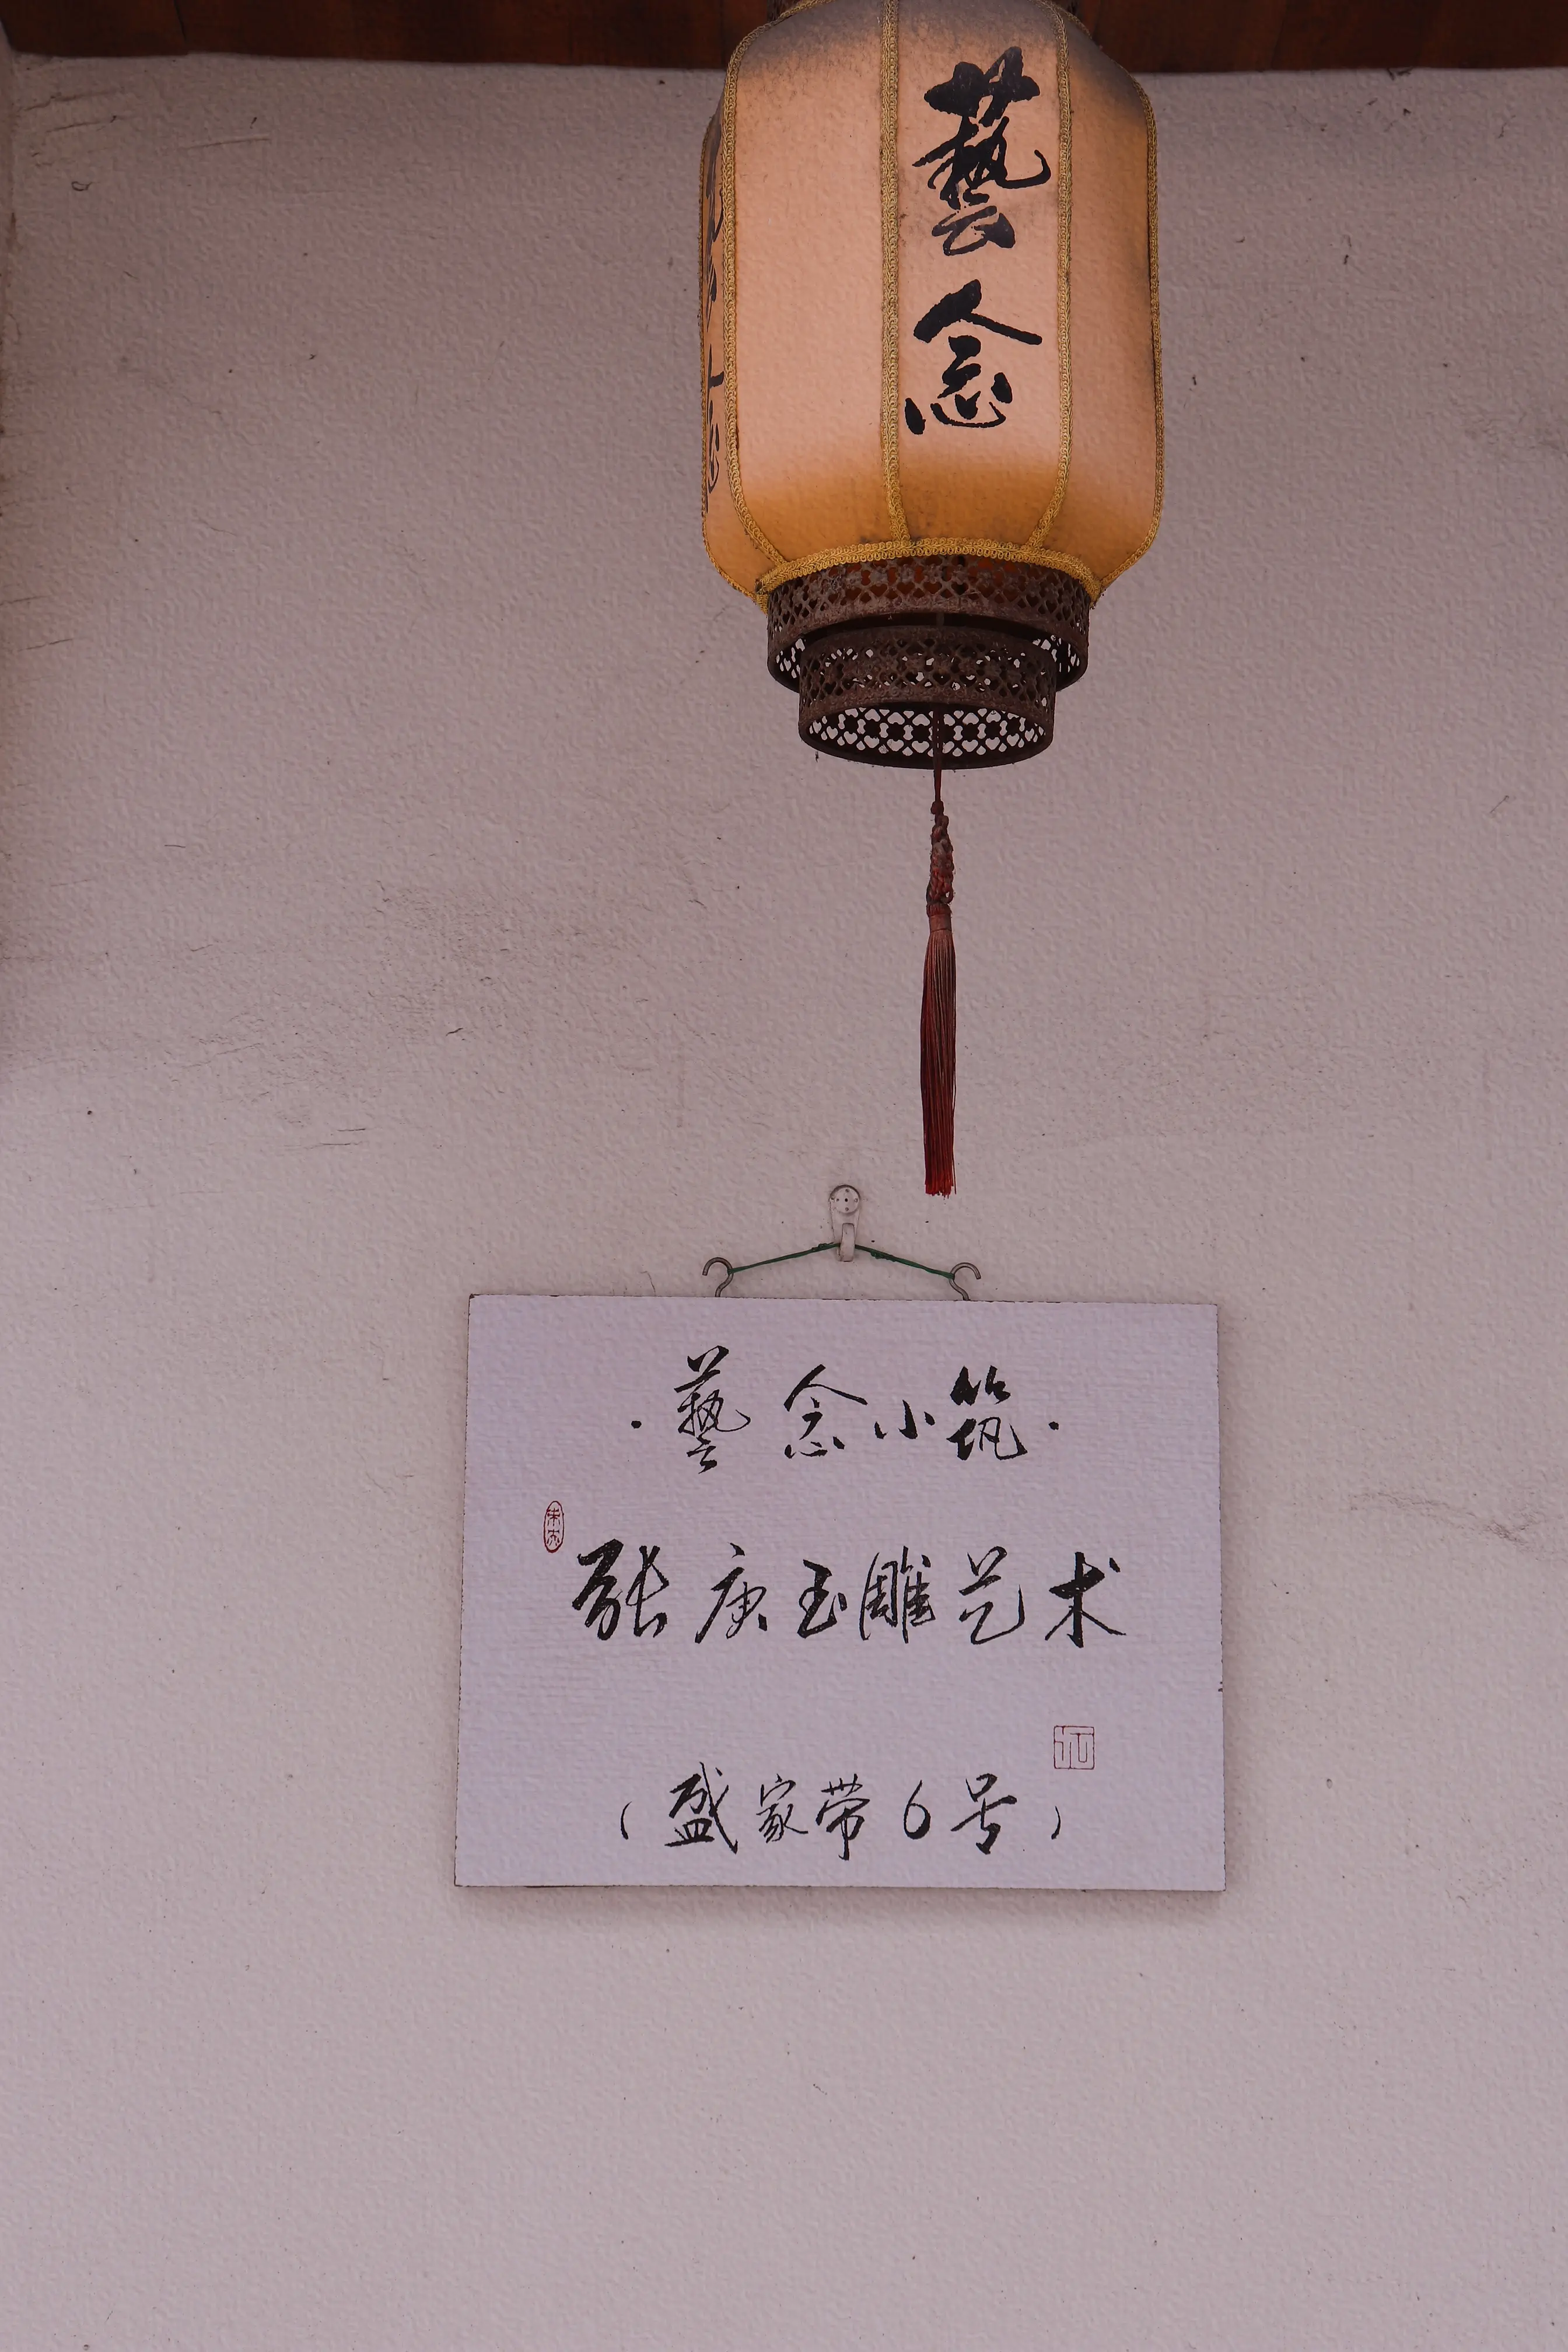 藝念
·藝念小筑·
张庚玉雕艺术
(盛家带6号)